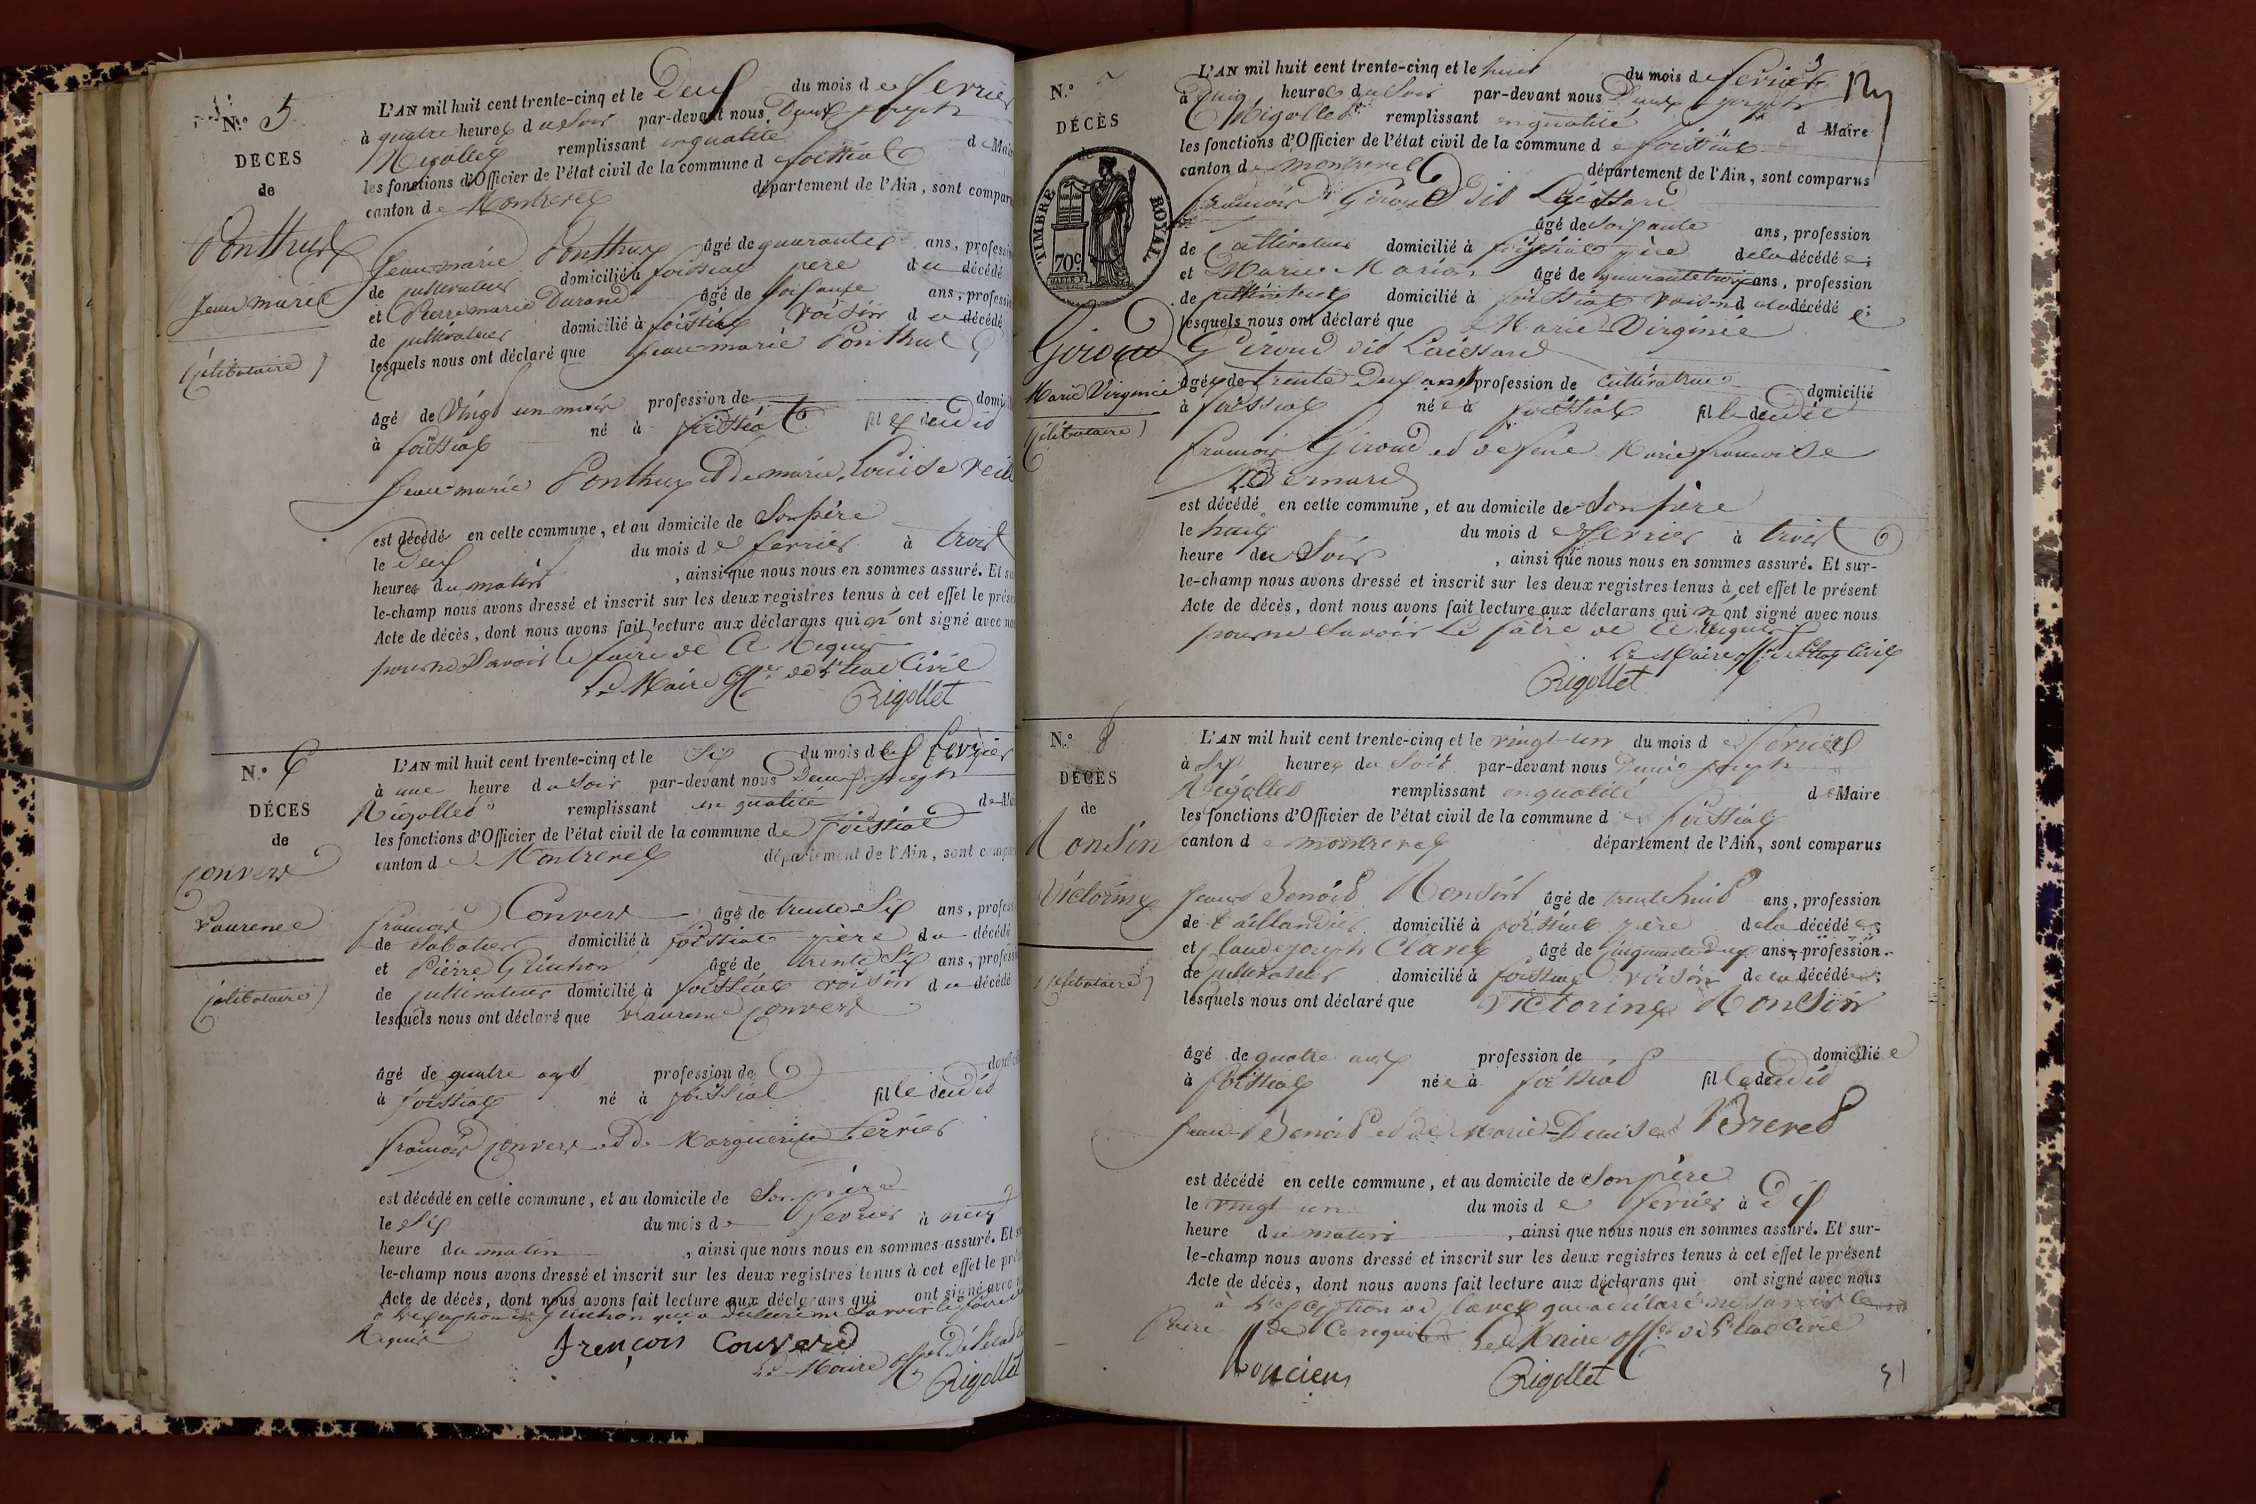 N.º 5
DÉCES
de
Ponthus
Jean marie
(Célibataire)
L'AN mil huit cent trente-cinq et le Deux du mois de fevrier
à quatre heures du soir par-devant nous Denis joseph
Rigollet remplissant en qualité de Maire
les fonctions d'Officier de l'état civil de la commune de foissiat
canton de Montrevel département de l'Ain, sont comparus
Jean-marie Ponthus âgé de quarante ans, profession
de cultivateur domicilié à foissiat père du décédé
et Pierre marie Durand âgé de soixante ans, profession
de cultivateur domicilié à foissiat voisin du décédé
lesquels nous ont déclaré que Jean-marie Ponthus
âgé de Vingt un mois profession de domicilié
à foissiat né à foissiat fils de dit
Jean-marie Ponthus et De marie Louise
est décédé en cette commune, et au domicile de Son père
le Deux du mois de fevrier à trois
heures du matin, ainsi que nous nous en sommes assuré. Et sur-
le-champ nous avons dressé et inscrit sur les deux registres tenus à cet effet le présent
Acte de décès, dont nous avons fait lecture aux déclarans qui n'ont signé avec nous
pour ne Savoir le faire de Ce Requis
Le Maire off.er de l'état Civil
Rigollet
N.º 6
DÉCES
de
Convert
Laurence
(Célibataire)
L'AN mil huit cent trente-cinq et le Six du mois de fevrier
à une heure du soir par-devant nous Denis joseph
Rigollet remplissant en qualité de Maire
les fonctions d'Officier de l'état civil de la commune de foissiat
canton de Montrevel département de l'Ain, sont comparus
françois Convert âgé de trente Six ans, profession
de Sabotier domicilié à foissiat père du décédé
et Pierre Guichon âgé de trente Six ans, profession
de cultivateur domicilié à foissiat voisin du décédé
lesquels nous ont déclaré que Laurence Convert
âgé de quatre ans profession de domicilié
à foissiat né à foissiat fille de dit
françois Convert et De Marguerite
est décédé en cette commune, et au domicile de Son père
le Six du mois de fevrier à neuf
heure du matin, ainsi que nous nous en sommes assuré. Et sur-
le-champ nous avons dressé et inscrit sur les deux registres tenus à cet effet le présent
Acte de décès, dont nous avons fait lecture aux déclarans qui ont signé avec nous
à l'exception de Guichon qui a déclaré ne savoir le faire de
Requis
françois Convert
Le Maire off.er De l'état
Rigollet
N.º 7
DÉCÈS
de
TIMBRE ROYAL
70c
Giroud
Marie Virginie
(Célibataire)
L'AN mil huit cent trente-cinq et le huit du mois de fevrier
à cinq heures du Soir par-devant nous Denis joseph
Rigollet remplissant en qualité de Maire
les fonctions d'Officier de l'état civil de la commune de foissiat
canton de montrevel département de l'Ain, sont comparus
françois Giroud dit
âgé de soixante ans, profession
de Cultivateur domicilié à foissiat père de la décédée
et Marie âgé de quarante trois ans, profession
de cultivatrice domicilié à foissiat de la décédé
lesquels nous ont déclaré que Marie Virginie
Giroud dit
âgée de trente Deux ans profession de Cultivatrice domicilié
à foissiat née à foissiat fille de dit
françois Giroud et de feue Marie françoise
Bernard
est décédé en cette commune, et au domicile de Son père
le huit du mois de fevrier à trois
heure du Soir, ainsi que nous nous en sommes assuré. Et sur-
le-champ nous avons dressé et inscrit sur les deux registres tenus à cet effet le présent
Acte de décès, dont nous avons fait lecture aux déclarans qui n'ont signé avec nous
pour ne Savoir le faire de Ce Requis
Le Maire off.er de l'état Civil
Rigollet
N.º 8
DÉCÈS
de
Monsin
Victorine
(Célibataire)
L'AN mil huit cent trente-cinq et le vingt-un du mois de fevrier
à Six heures du Soir par-devant nous Denis joseph
Rigollet remplissant en qualité de Maire
les fonctions d'Officier de l'état civil de la commune de foissiat
canton de montrevel département de l'Ain, sont comparus
Jean Benoit Monsin âgé de trente huit ans, profession
de taillandier domicilié à foissiat père de la décédée
et Claude joseph Clavel âgé de cinquante deux ans, profession
de cultivateur domicilié à foissiat voisin de la décédée
lesquels nous ont déclaré que Victorine Monsin
âgé de quatre ans profession de domiciliée
à foissiat née à foissiat fille de dit
Jean Benoit et de Marie Denise Brevet
est décédé en cette commune, et au domicile de Son père
le vingt un du mois de fevrier à Dix
heure du matin, ainsi que nous nous en sommes assuré. Et sur-
le-champ nous avons dressé et inscrit sur les deux registres tenus à cet effet le présent
Acte de décès, dont nous avons fait lecture aux déclarans qui ont signé avec nous
à l'exception de Clavel qui a déclaré ne savoir le
faire de Ce requis Le Maire off.er de l'état Civil
Moncien
Rigollet